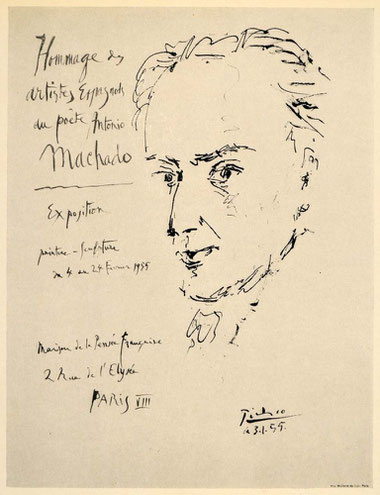 Hommage des
artistes Espagnols
au poète Antonio
Machado
Exposition
peinture - sculpture
du 4 au 24 février 1955
Maison de la Pensée Française
2 Rue de l'Elysée
PARIS VIII
Picasso
le 3.1.55.